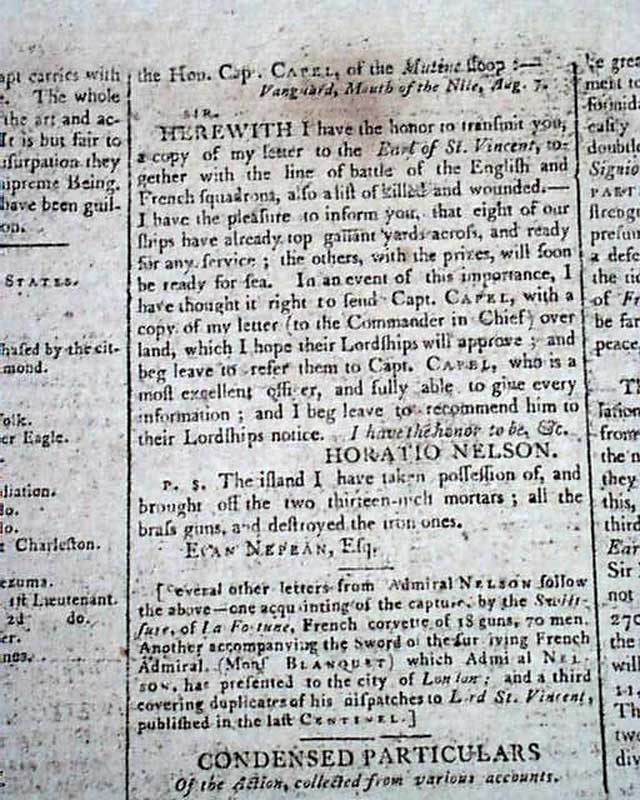 apt carries with
e. The whole
the art and ac-
It is but fair to
usurpation they
upreme Being.
have been guil-
on.
STATES.
hased by the cit-
mond.
folk.
er Eagle.
liation.
do.
do.
t Charleſton.
ezums.
1ſt Lieutenant.
2d do.
er.
nes.
the Hon. Cap. CAPEL, of the Mutine ſloop :—
Vanguard, Mouth of the Nile, Aug. 7.
SIR.
HEREWITH I have the honor to tranſmit you,
a copy of my letter to the Earl of St. Vincent, to-
gether with the line of battle of the Engliſh and
French ſquadrons, alſo a liſt of killed and wounded.—
I have the pleaſure to inform you, that eight of our
ſhips have already top gallant yards acroſs, and ready
for any ſervice ; the others, with the prizes, will ſoon
be ready for ſea. In an event of this importance, I
have thought it right to ſend Capt. CAPEL, with a
copy of my letter (to the Commander in Chief) over
land, which I hope their Lordſhips will approve ; and
beg leave to refer them to Capt. CAPEL, who is a
moſt excellent officer, and fully able to give every
information ; and I beg leave to recommend him to
their Lordſhips notice. I have the honor to be, &c.
HORATIO NELSON.
P. S. The iſland I have taken poſſeſſion of, and
brought off the two thirteen-inch mortars ; all the
braſs guns, and deſtroyed the iron ones.
EVAN NEPEAN, Eſq.
[Several other letters from Admiral NELSON follow
the above—one acquainting of the capture, by the Swift-
ſure, of La Fortune, French corvette of 18 guns, 70 men.
Another accompanying the Sword of the ſurviving French
Admiral, (Monſ BLANQUET) which Admiral NEL-
SON, has preſented to the city of London; and a third
covering duplicates of his diſpatches to Lord St. Vincent,
publiſhed in the laſt CENTINEL.]
CONDENSED PARTICULARS
Of the Action, collected from various accounts.
he grea
ment to
formid
eaſily
doubtle
Signio
PART
ſtreng
preſum
a defe
the ti
of Fr
be far
peace.
Th
lation
from
the n
they
this,
third
Ear
Sir
not
270
the
will
Th
two
div